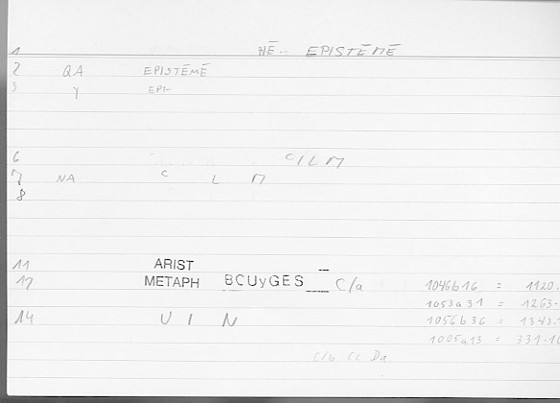 1 HĒ - EPISTĒMĒ
2 QA EPISTĒMĒ
3 Y EPI-
6 C/LM
7 NA C L M
8
11 ARIST
12 METAPH BCUyGES C/a 1046b16 = 1120.
1053a31 = 1263.
14 U I N 1056b36 = 1343.
1005a13 = 331.10
C/b Cc Da